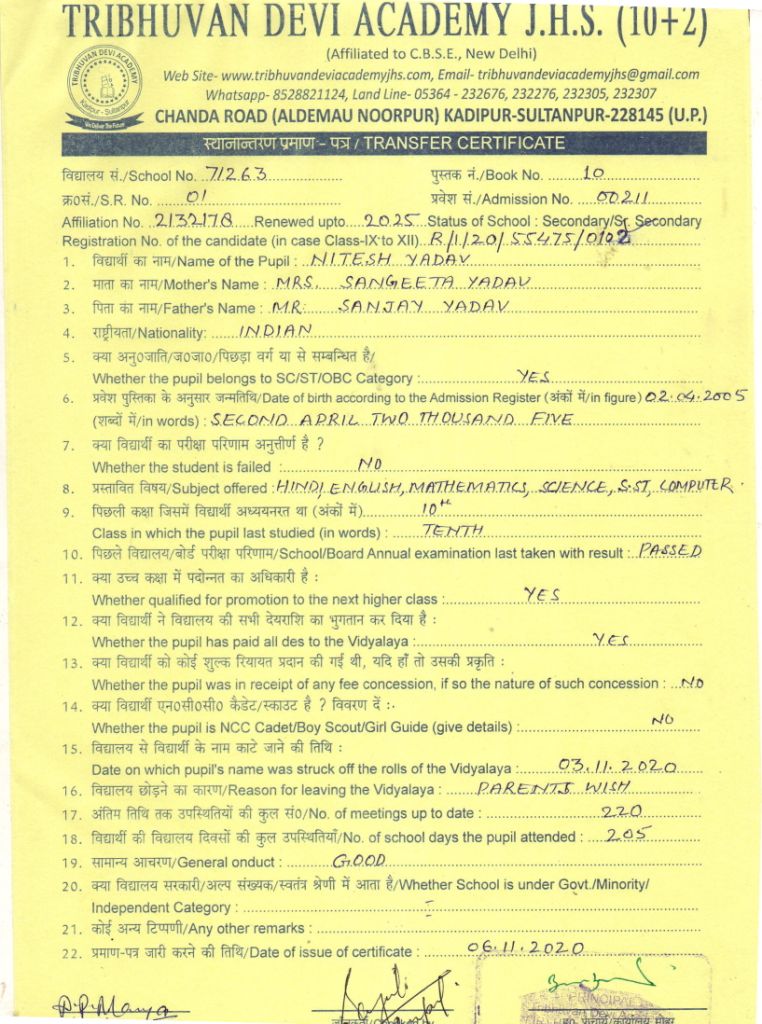 TRIBHUVAN DEVI ACADEMY J.H.S. (10+2)
(Affiliated to C.B.S.E., New Delhi)
TRIBHUVAN DEVI ACADEMY
Kadipur - Sultanpur
We Deliver The Future
Web Site- www.tribhuvandeviacademyjhs.com, Email- tribhuvandeviacademyjhs@gmail.com
Whatsapp- 8528821124, Land Line- 05364 - 232676, 232276, 232305, 232307
CHANDA ROAD (ALDEMAU NOORPUR) KADIPUR-SULTANPUR-228145 (U.P.)
स्थानान्तरण प्रमाण - पत्र / TRANSFER CERTIFICATE
विद्यालय सं./School No. 71263 पुस्तक नं./Book No. 10
क्र०सं./S.R. No. 01 प्रवेश सं./Admission No. 00211
Affiliation No. 2132178 Renewed upto 2025 Status of School : Secondary/Sr. Secondary
Registration No. of the candidate (in case Class-IX to XII) R/1/20/55475/0102
1. विद्यार्थी का नाम/Name of the Pupil : NITESH YADAV
2. माता का नाम/Mother's Name : MRS. SANGEETA YADAV
3. पिता का नाम/Father's Name : MR. SANJAY YADAV
4. राष्ट्रीयता/Nationality: INDIAN
5. क्या अनु०जाति/ज०जा०/पिछड़ा वर्ग या से सम्बन्धित है/
Whether the pupil belongs to SC/ST/OBC Category : YES
6. प्रवेश पुस्तिका के अनुसार जन्मतिथि/Date of birth according to the Admission Register (अंकों में/in figure) 02.04.2005
(शब्दों में/in words) : SECOND APRIL TWO THOUSAND FIVE
7. क्या विद्यार्थी का परीक्षा परिणाम अनुत्तीर्ण है ?
Whether the student is failed : NO
8. प्रस्तावित विषय/Subject offered : HINDI, ENGLISH, MATHEMATICS, SCIENCE, S.ST, COMPUTER.
9. पिछली कक्षा जिसमें विद्यार्थी अध्ययनरत था (अंकों में) 10th
Class in which the pupil last studied (in words) : TENTH
10. पिछले विद्यालय/बोर्ड परीक्षा परिणाम/School/Board Annual examination last taken with result : PASSED
11. क्या उच्च कक्षा में पदोन्नत का अधिकारी है :
Whether qualified for promotion to the next higher class : YES
12. क्या विद्यार्थी ने विद्यालय की सभी देयराशि का भुगतान कर दिया है :
Whether the pupil has paid all des to the Vidyalaya : YES
13. क्या विद्यार्थी को कोई शुल्क रियायत प्रदान की गई थी, यदि हाँ तो उसकी प्रकृति :
Whether the pupil was in receipt of any fee concession, if so the nature of such concession : NO
14. क्या विद्यार्थी एन०सी०सी० कैडेट/स्काउट है ? विवरण दें :-
Whether the pupil is NCC Cadet/Boy Scout/Girl Guide (give details) : NO
15. विद्यालय से विद्यार्थी के नाम काटे जाने की तिथि :
Date on which pupil's name was struck off the rolls of the Vidyalaya : 03.11.2020
16. विद्यालय छोड़ने का कारण/Reason for leaving the Vidyalaya : PARENTS WISH
17. अंतिम तिथि तक उपस्थितियों की कुल सं०/No. of meetings up to date : 220
18. विद्यार्थी की विद्यालय दिवसों की कुल उपस्थितियाँ/No. of school days the pupil attended : 205
19. सामान्य आचरण/General onduct : GOOD
20. क्या विद्यालय सरकारी/अल्प संख्यक/स्वतंत्र श्रेणी में आता है/Whether School is under Govt./Minority/
Independent Category : -
21. कोई अन्य टिप्पणी/Any other remarks :
22. प्रमाण-पत्र जारी करने की तिथि/Date of issue of certificate : 06.11.2020
PRINCIPAL